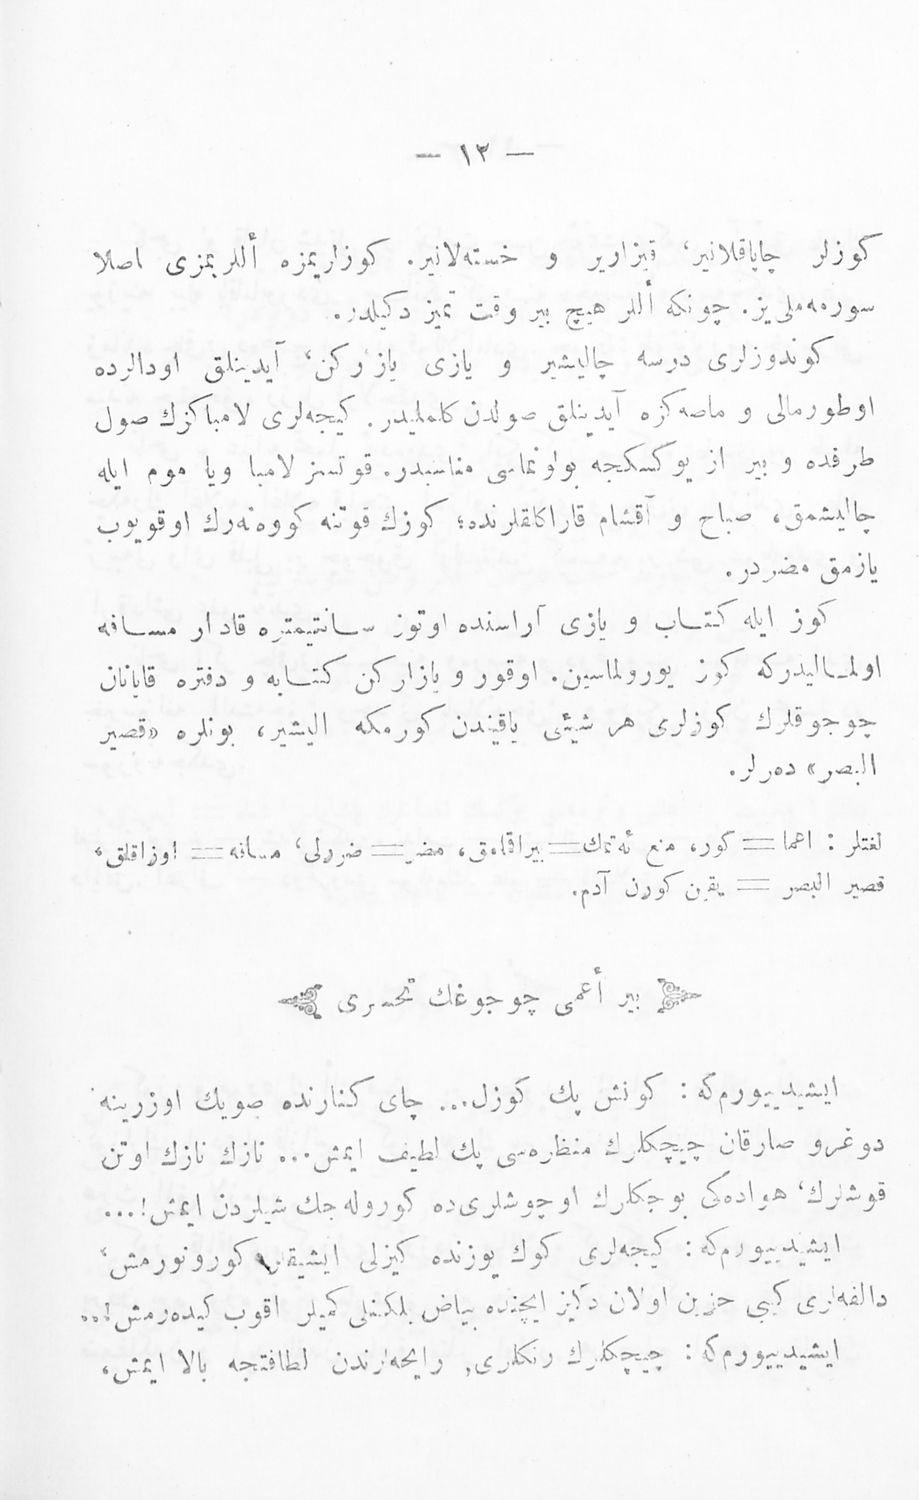 — ١٣ —
كوزلر چاپاقلانير، قيزارير و خسته‌لانير. كوزلريمزه أللريمزى اصلا
سورمه‌ملى‌يز. چونكه أللر هيچ بير وقت تميز دكيلدر.
كوندوزلرى درسه چاليشير و يازى يازاركن، آيدينلق اودالرده
اوطورمالى و ماصه‌كزه آيدينلق صولدن كلمليدر. كيجه‌لرى لامباكزك صول
طرفده و بير از يوكسكجه بولونماسى مناسبدر. قوتسز لامبا ويا موم ايله
چاليشمق، صباح و آقشام قاراكلقلرنده؛ كوزك قوتنه كووه‌نه‌رك اوقويوب
يازمق مضردر.
كوز ايله كتاب و يازى آراسنده اوتوز سانتيمتره قادار مسافه
اولماليدركه كوز يورولماسين. اوقور و يازاركن كتابه و دفتره قاپانان
چوجوقلرك كوزلرى هر شيئى ياقيندن كورمكه اليشير، بونلره «قصير
البصر» ده‌رلر.
لغتلر : اعما = كور، منع ئه‌تمك = بيراقمامق، مضر = ضررلى، مسافه = اوزاقلق،
قصير البصر = يقين كورن آدم.
بير أعمى چوجوغك تحسرى
ايشيدييورم‌كه : كونش پك كوزل... چاى كنارنده صويك اوزرينه
دوغرو صارقان چيچكلرك منظره‌سى پك لطيف ايمش... نازك نازك اوتن
قوشلرك، هواده‌كى بوجكلرك اوچوشلرى‌ده كوروله‌جك شيلردن ايمش!...
ايشيدييورم‌كه : كيجه‌لرى كوك يوزنده كيزلى ايشيقلر كورونورمش،
دالغه‌لرى كبى حزين اولان دكيز ايچنده بياض يلكنلى كميلر اقوب كيده‌رمش!...
ايشيدييورم‌كه : چيچكلرك رنكلرى, رايحه‌لرندن لطافتجه بالا ايمش،